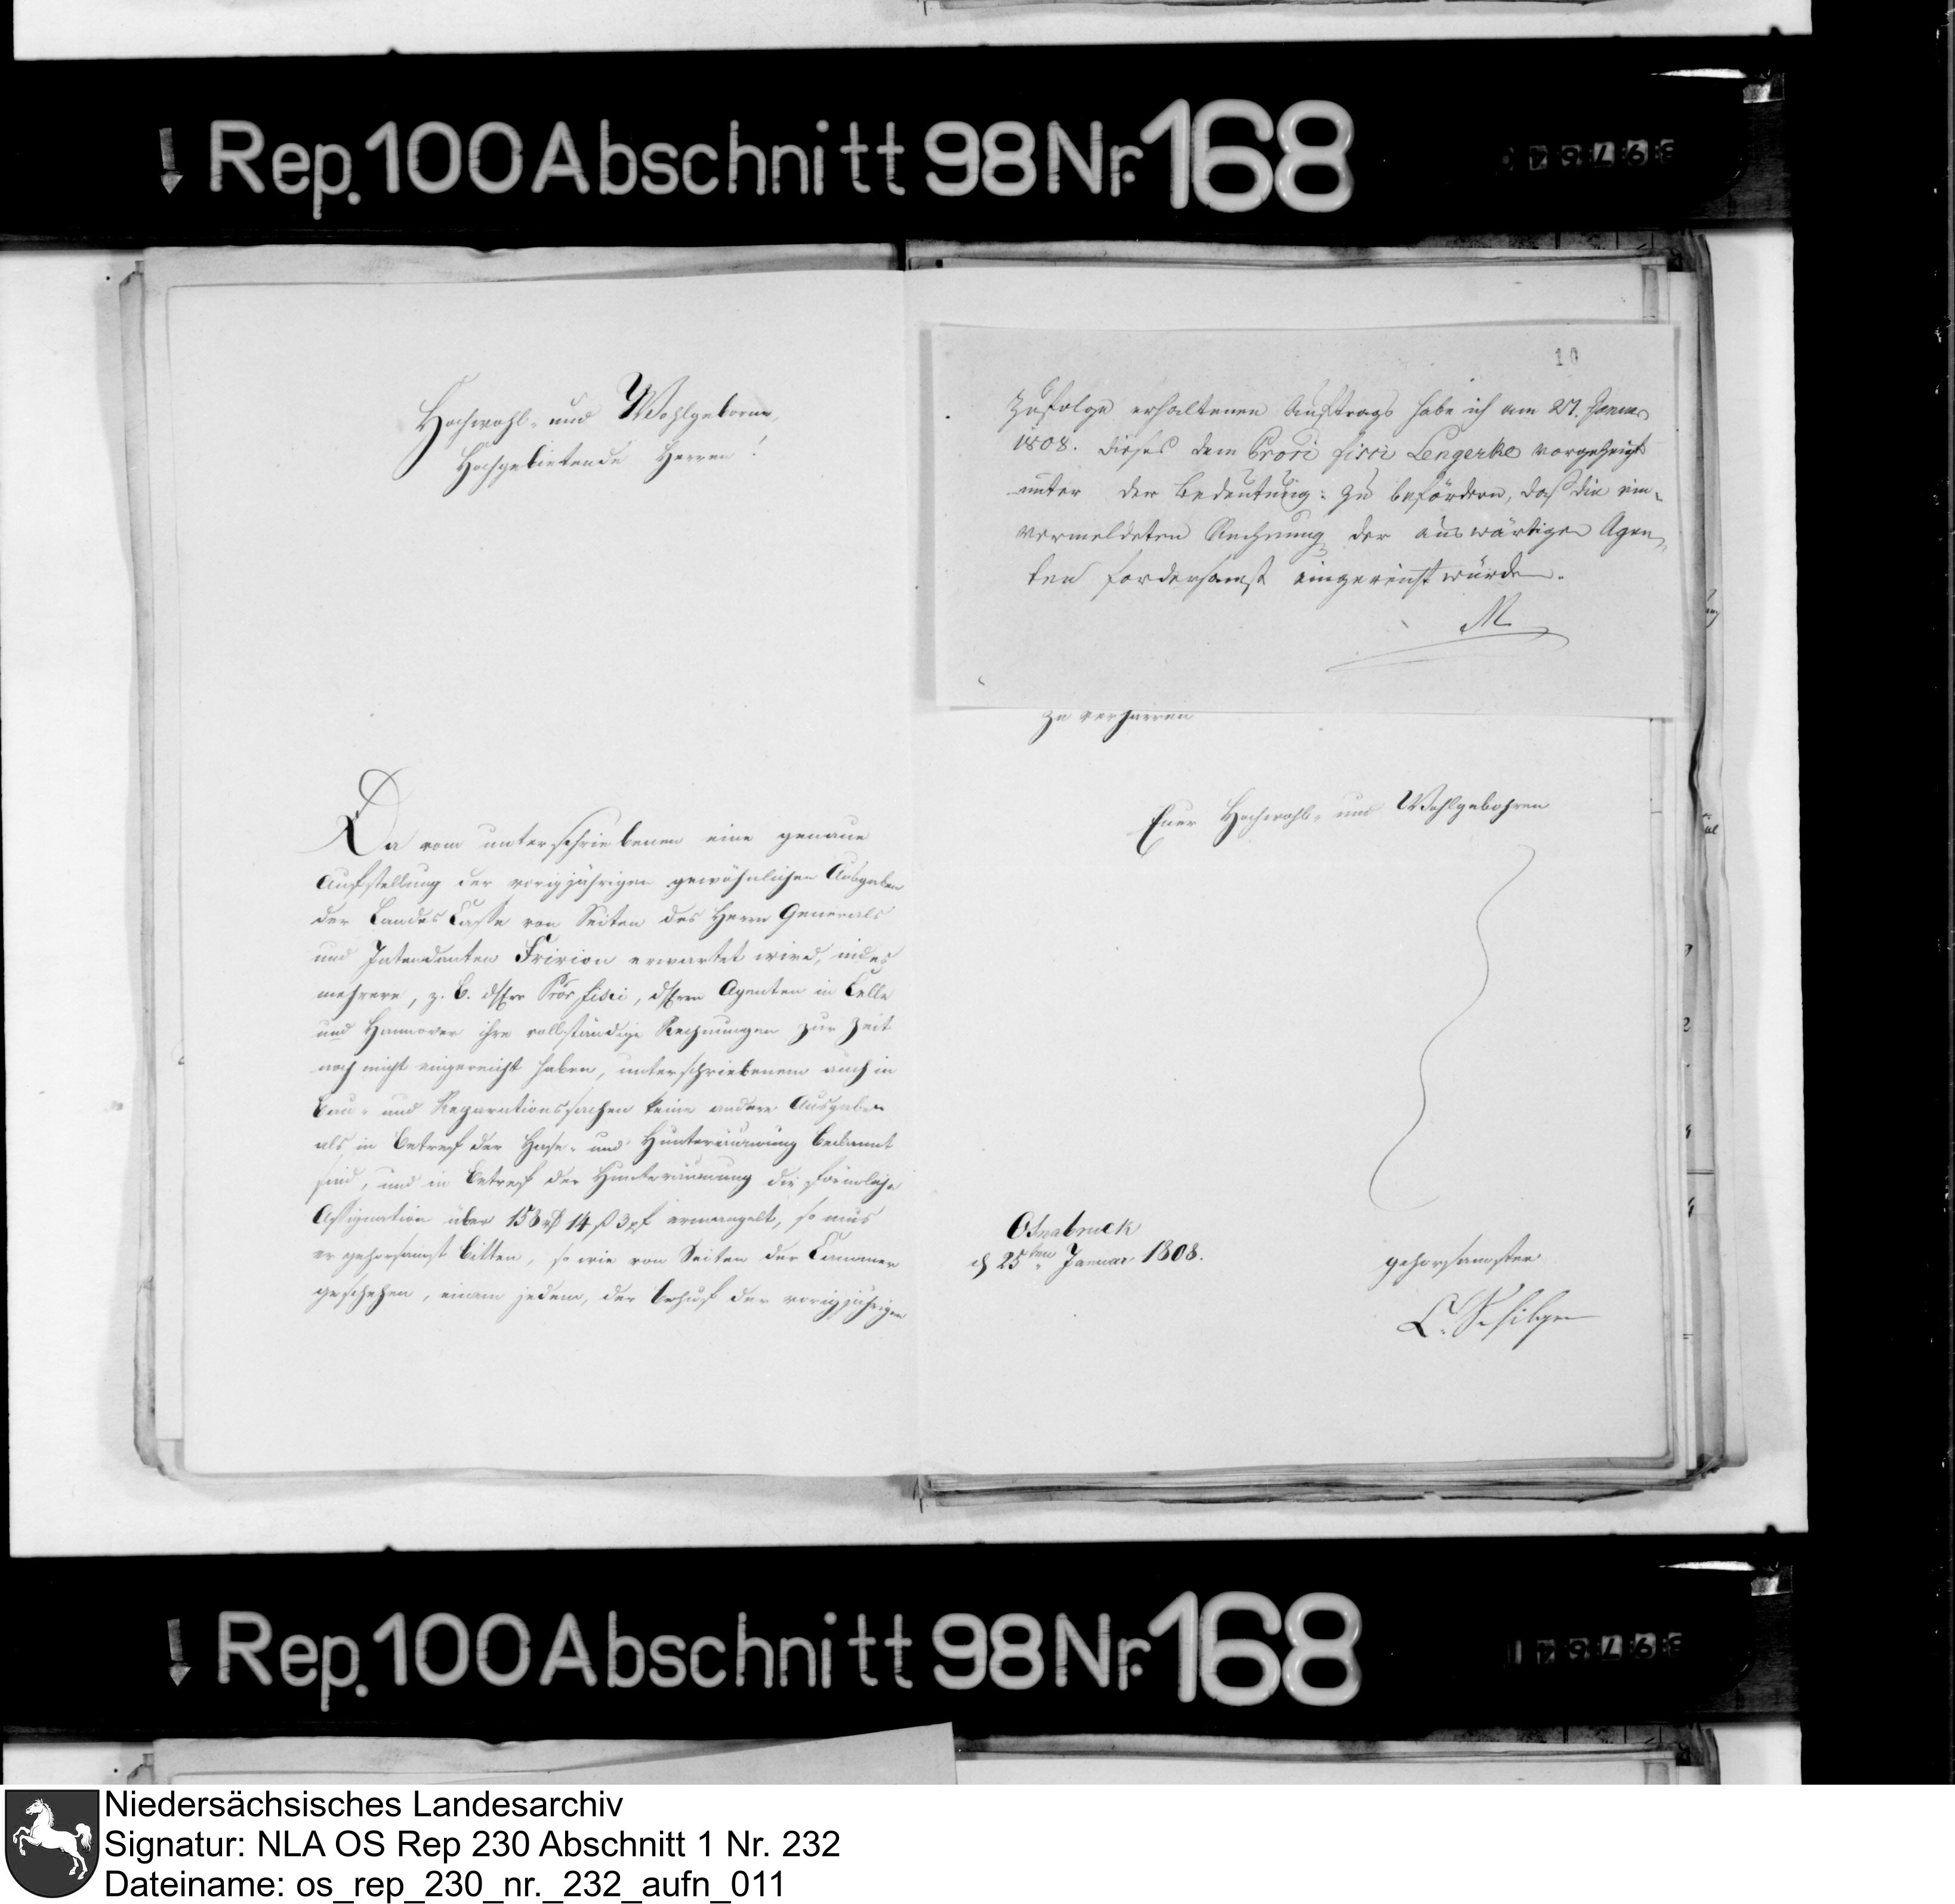 Rep. 100 Abschnitt 98 Nr. 168
Hochwohl- und Wohlgeborne,
Hochgebietende Herren!
Da vom unterschriebenen eine genaue
Aufstellung der vorigjährigen gewöhnlichen Ausgaben
der Landes Casse von Seiten des Herrn Generals
und Intendanten Fririon erwartet wird, indes
mehrere, z. B. Pror fisci, Agenten in Celle
und Hannover ihre vollständige Rechnungen zur Zeit
noch nicht eingereicht haben, unterschriebenem auch in
Bau- und Reparationssachen keine andere Ausgaben
als in Betref der Hase- und Hunteräumung bekannt
sind, und in Betref der Hunteräumung die förmliche
Assignation über 158 rß 14 ß 3 pf ermangelt, so mus
er gehorsamst bitten, so wie von Seiten der Cammer
geschehen, einem jedem, der behuf der vorigjährigen
10
Zufolge erhaltenen Auftrags habe ich am 27. Januar
1808. dieses dem Prori fisci Lengerke vorgezeigt
unter der Bedeutung: zu befördern, daß die ein-
vermeldeten Rechnung der auswärtigen Agen-
ten fordersamst eingereicht würden.
M
zu verharren
Euer Hochwohl- und Wohlgebohren
Osnabruck
d 25ten Januar 1808.
gehorsamster
Rep. 100 Abschnitt 98 Nr. 168
Niedersächsisches Landesarchiv
Signatur: NLA OS Rep 230 Abschnitt 1 Nr. 232
Dateiname: os_rep_230_nr._232_aufn_011